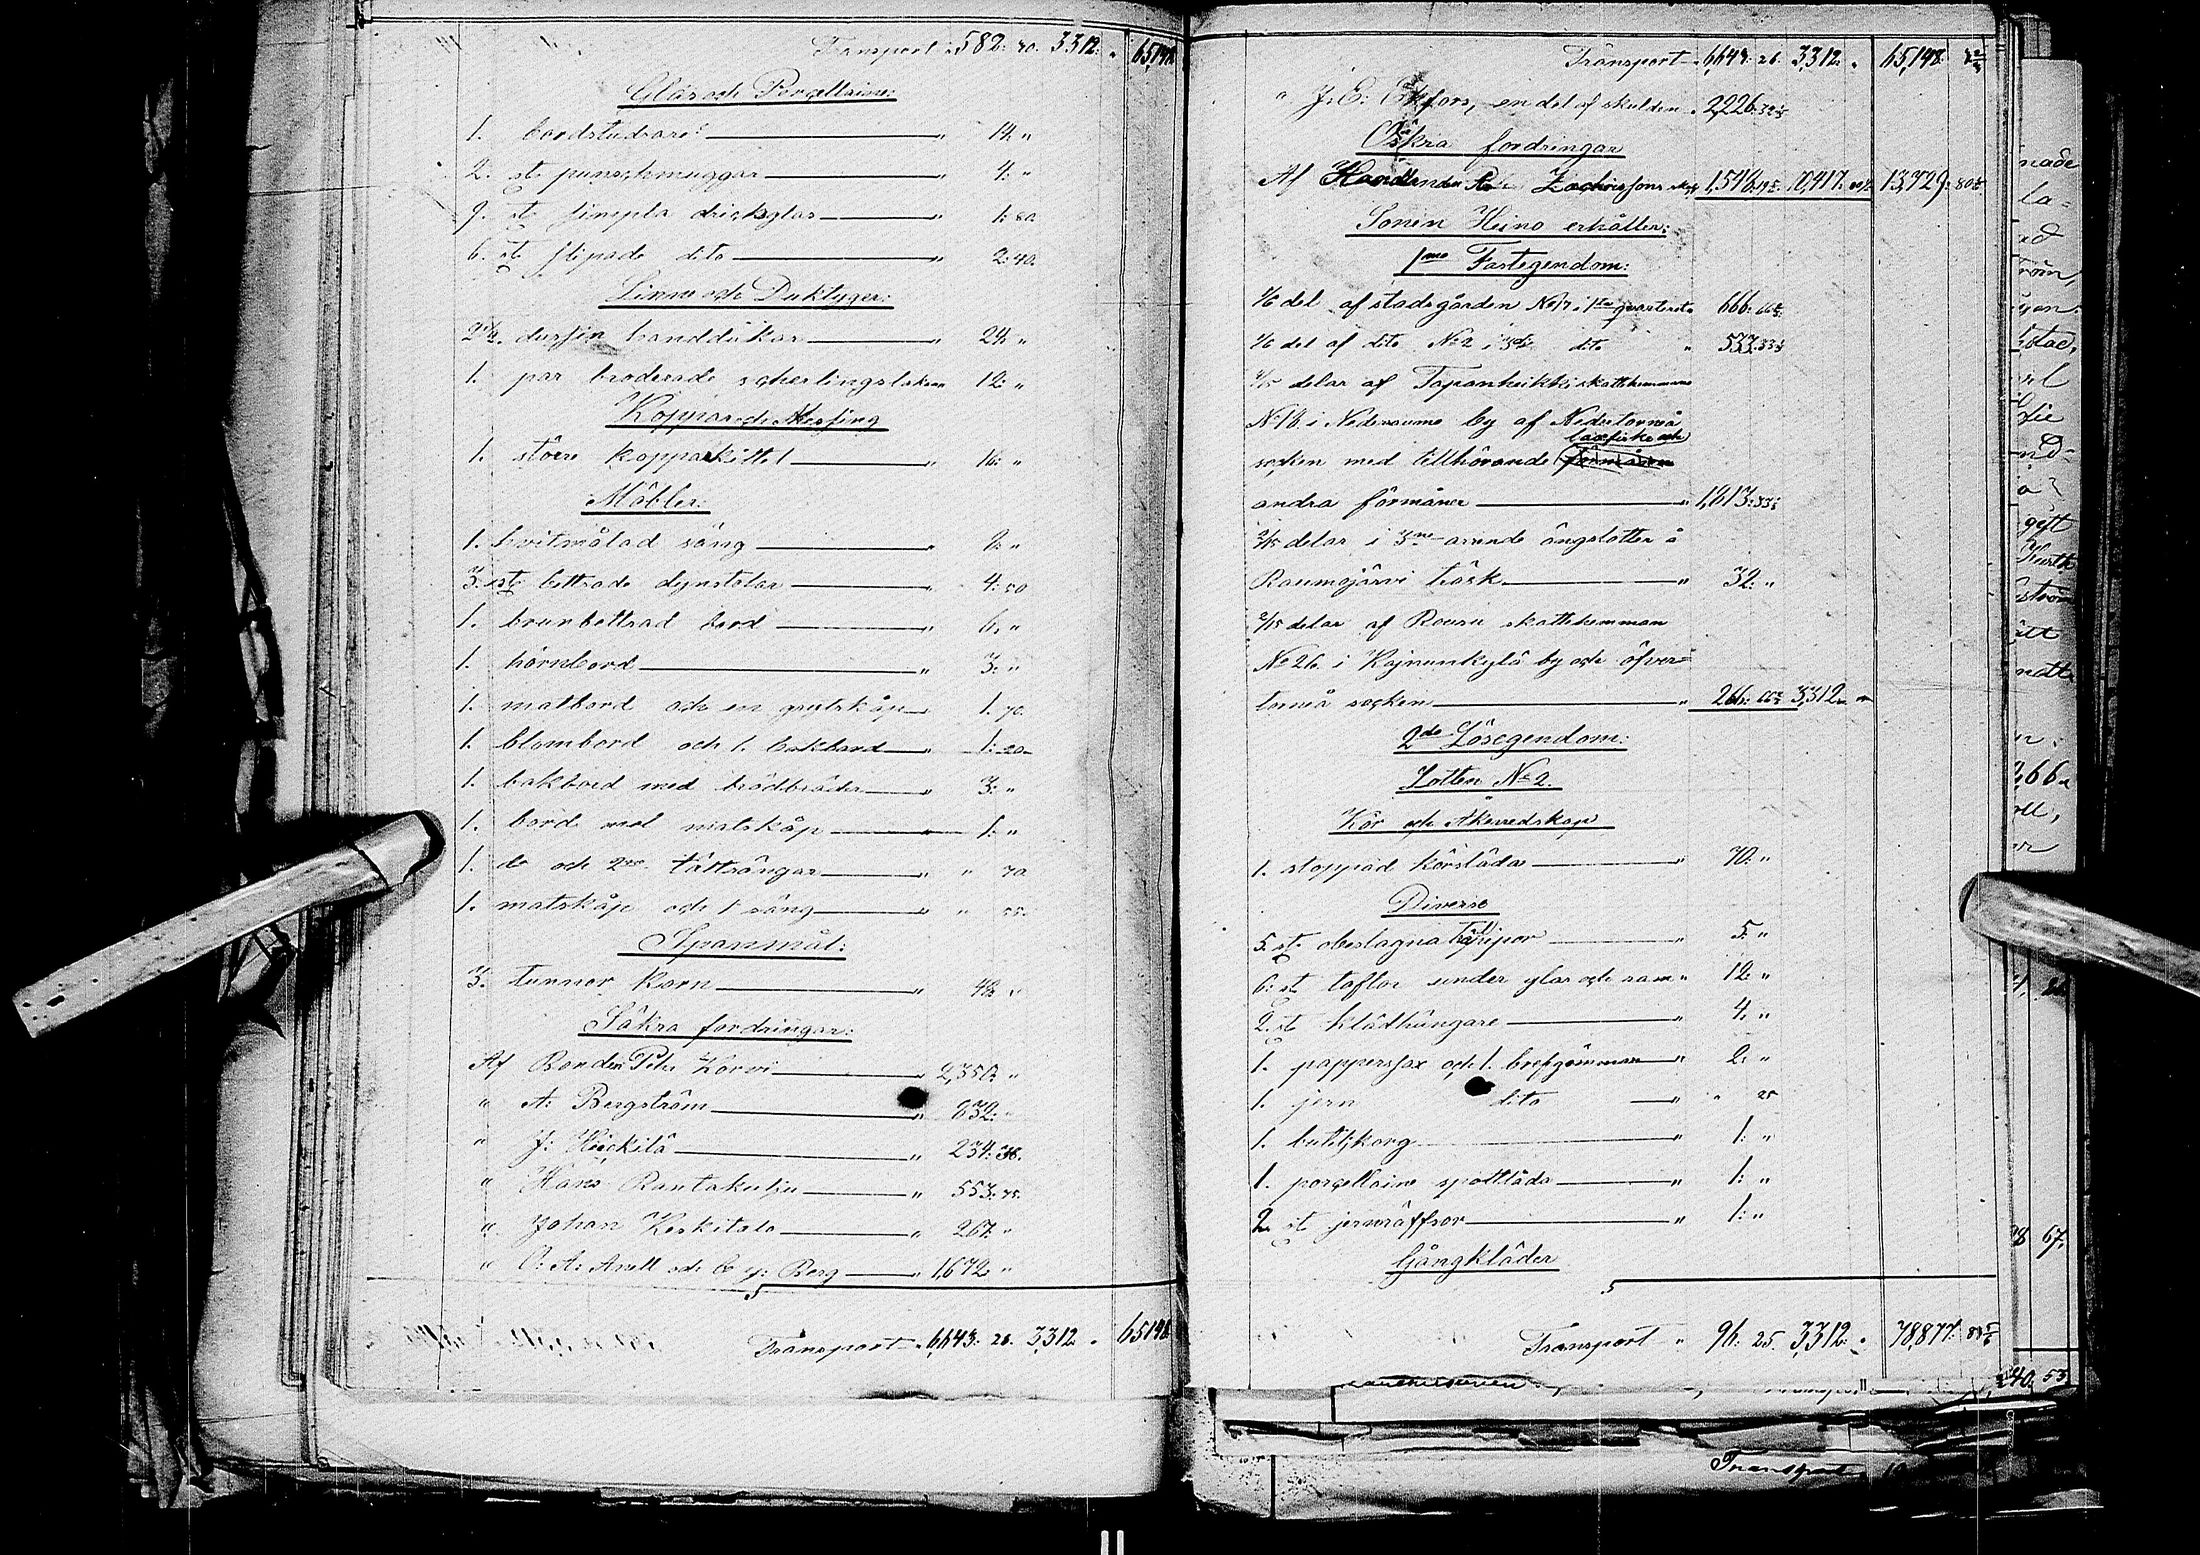 Transport 582. 70. 3312. " 65,148.
Glas och Porcellaine:
1. bordstudsare " 14 "
2. st punschmuggar " 4. "
9. st simpla dricksglas " 1: 80
6. st slipade dito " 2: 40.
Linne och Duktyger:
2½ dussin handdukar " 24 "
1. par broderade scherlingslakan 12: "
Koppar och Messing
1. större kopparkittel " 16 "
Möbler:
1. hvitmålad säng " "
3. st bettsade dynstolar " 4: 50
1. brunbettsad bord " 6. "
1. hörnbord " 3. "
1. matbord och en grytskåp 1. 70.
1. blombord och 1. bakbord " 1: 20
1. bakbord med brödbräda " 3: "
1. bord med matskåp " 1: "
1. do och 2ne tältsängar " " 70
1. matskåp och 1 säng " " 55.
Spanmål:
3. tunnor korn " 48 "
Säkra fordringar:
Af Bonden Petter Korvi 2,350. "
" A: Bergström " 632: "
" J: Heickilä " 234: 36.
" Hans Rantakulju " 553: 75.
" Johan Keskitalo " 267. "
" O: A: Anell och Berg " 1,672 "
Transport " 6,643. 26. 3,312. " 65148.
Transport " 6,643. 26. 3,312. " 65,148.
" J: E: Ekfors, en del af skulden " 2,226.
Osäkra fordringar
Af Handlanden Zachrissons 13,729: 80
Sonen Heino erhåller:
1mo Fastegendom:
1/6 del af stadsgården No 17 i 1sta qvarteret " 666: 66
1/6 del af dito No 2 i 3dje dito " 533. 33
2/15 delar af Tapanheikki skattehemman
No 18. i Nedervuono by af Nedertorneå
laxfiske och
socken med tillhörande förmåner
andra förmåner " 1,813: 33
2/15 delar i 3ne arende ängslotter å
Raumojärvi träsk " 32: "
2/15 delar af Rousu skattehemman
No 26. i Kainunkylä by och öfver
torneå socken " 266: 66 3,312 "
2do Lösegendom:
Lotten No 2.
Kör och Åkeredskap
1. stoppad körsläda " 70. "
Diverse
5. st obeslagna " 5: "
6: st taflor under glas och ram " 12: "
2. st klädhängare " 4. "
1. papperssax och 1. brefgömmare " 2: "
1. jern dito " " 25
1. buteljkorg " 1: "
1. porcellaine spottlåda " 1: "
2 st jernräfsor " 1: "
Gångkläder
Transport " 96. 25. 3,312: " 78,877. 88
240. 53
Transport